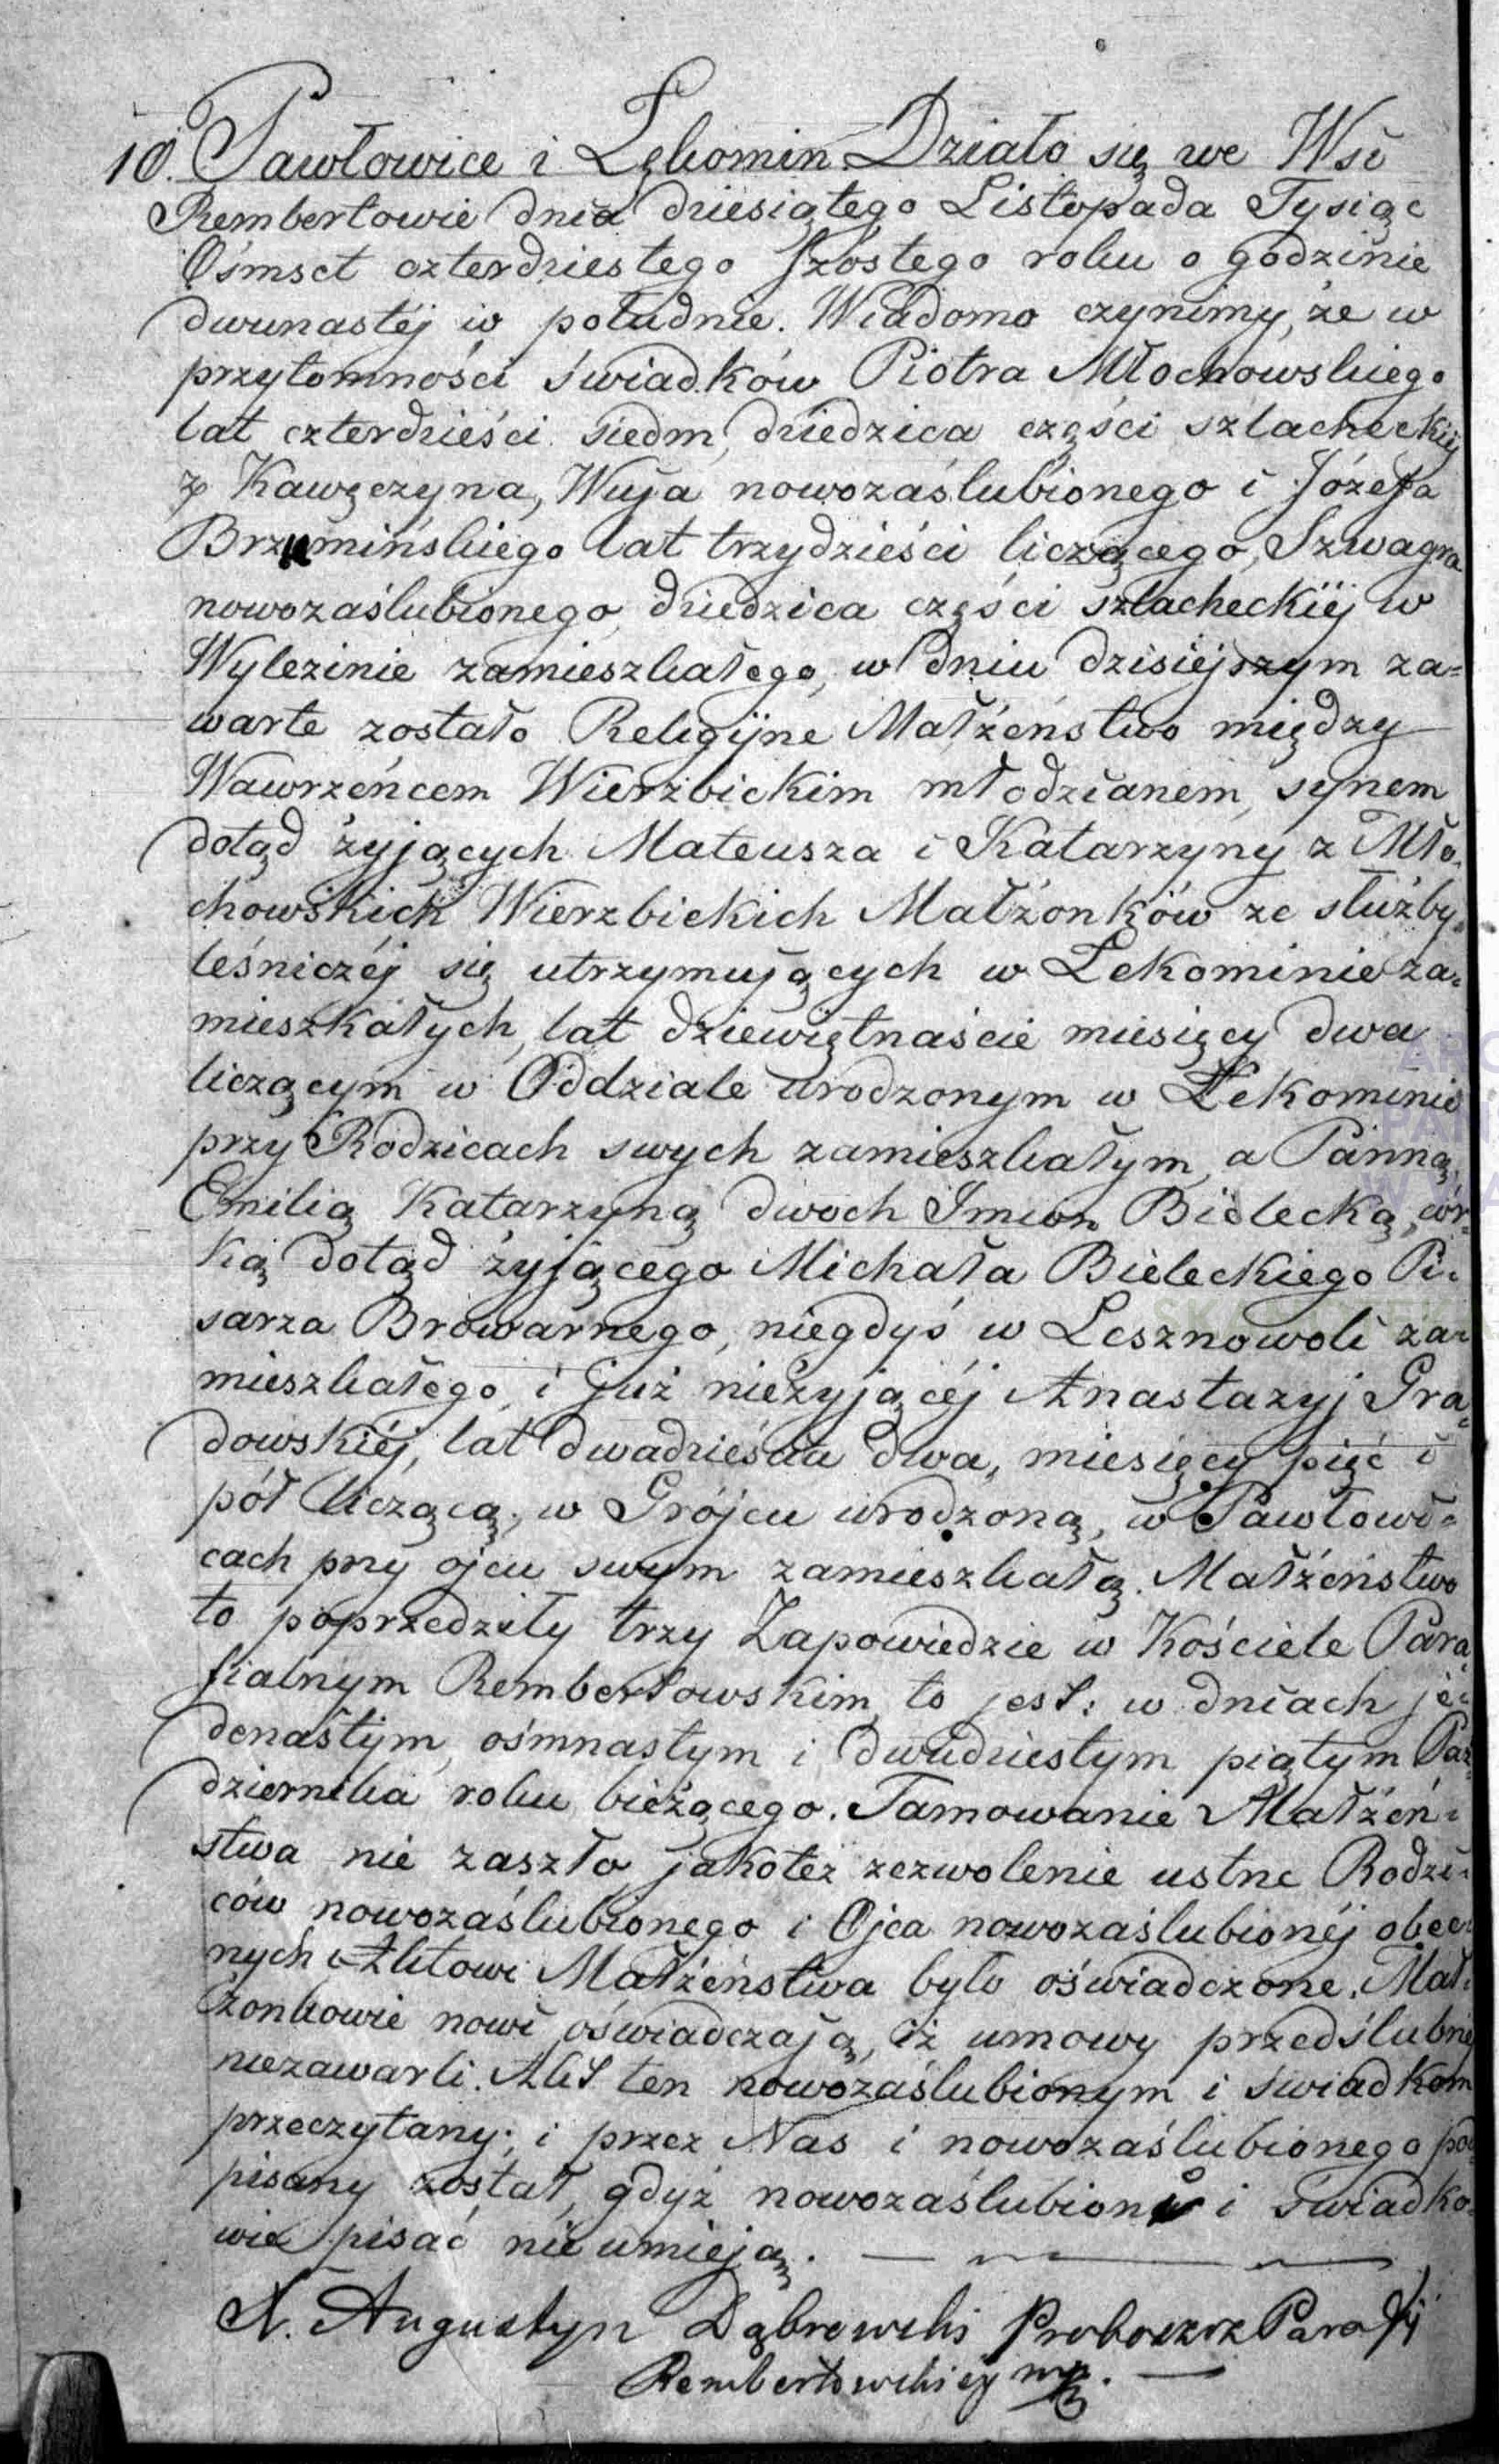 10. Pawłowice i Lękomin. Działo się we Wsi
Rembertowie dnia dziesiątego Listopada Tysiąc
Ośmset czterdziestego szóstego roku o godzinie
dwunastéj w południe. Wiadomo czynimy, że w
przytomności świadków Piotra Młochowskiego
lat czterdzieści siedm, dziedzica części szlacheckiéj
z Kawęczyna, Wuja nowozaślubionego i Józefa
Brzumińskiego lat trzydzieści liczącego, Szwagra
nowozaślubionego, dziedzica części szlacheckiéj w
Wylezinie zamieszkałego, w dniu dzisiéjszym za=
warte zostało Religijne Małżeństwo między
Wawrzeńcem Wierzbickim młodzianem, synem
dotąd żyjących Mateusza i Katarzyny z Mło=
chowskich Wierzbickich Małżonków ze służby
leśniczéj się utrzymujących w Lekominie za=
mieszkałych, lat dziewiętnaście miesięcy dwa
liczącym w Oddziale urodzonym w Lekominie
przy Rodzicach swych zamieszkałym, a Panną
Emilią Katarzyną dwoch Imion Bielecką, cór=
ką dotąd żyjącego Michała Bieleckiego Pi=
sarza Browarnego, niegdyś w Lesznowoli za=
mieszkałego, i już nieżyjącéj Anastazyj Gra=
dowskiéj, lat dwadzieścia dwa, miesięcy pięć i
pół liczącą, w Grójcu urodzoną, w Pawłowi=
cach przy ojcu swym zamieszkałą. Małżeństwo
to poprzedziły trzy Zapowiedzie w Kościele Para=
fialnym Rembertowskim, to jest: w dniach je=
denastym, ośmnastym i dwudziestym piątym Paź=
dziernika roku bieżącego. Tamowanie Małżeń=
stwa nie zaszło, jakoteż zezwolenie ustne Rodzi=
ców nowozaślubionego i Ojca nowozaślubionéj obec=
nych Aktowi Małżeństwa było oświadczone. Mał=
żonkowie nowi oświadczają, iż umowy przedślubnéj
niezawarli. Akt ten nowozaślubionym i świadkom
przeczytany; i przez Nas i nowozaślubionego pod=
pisany został, gdyż nowozaślubiona i świadko=
wie pisać nieumieją.
X. Augustyn Dąbrowski Proboszcz Parafij
Rembertowskiey mp.